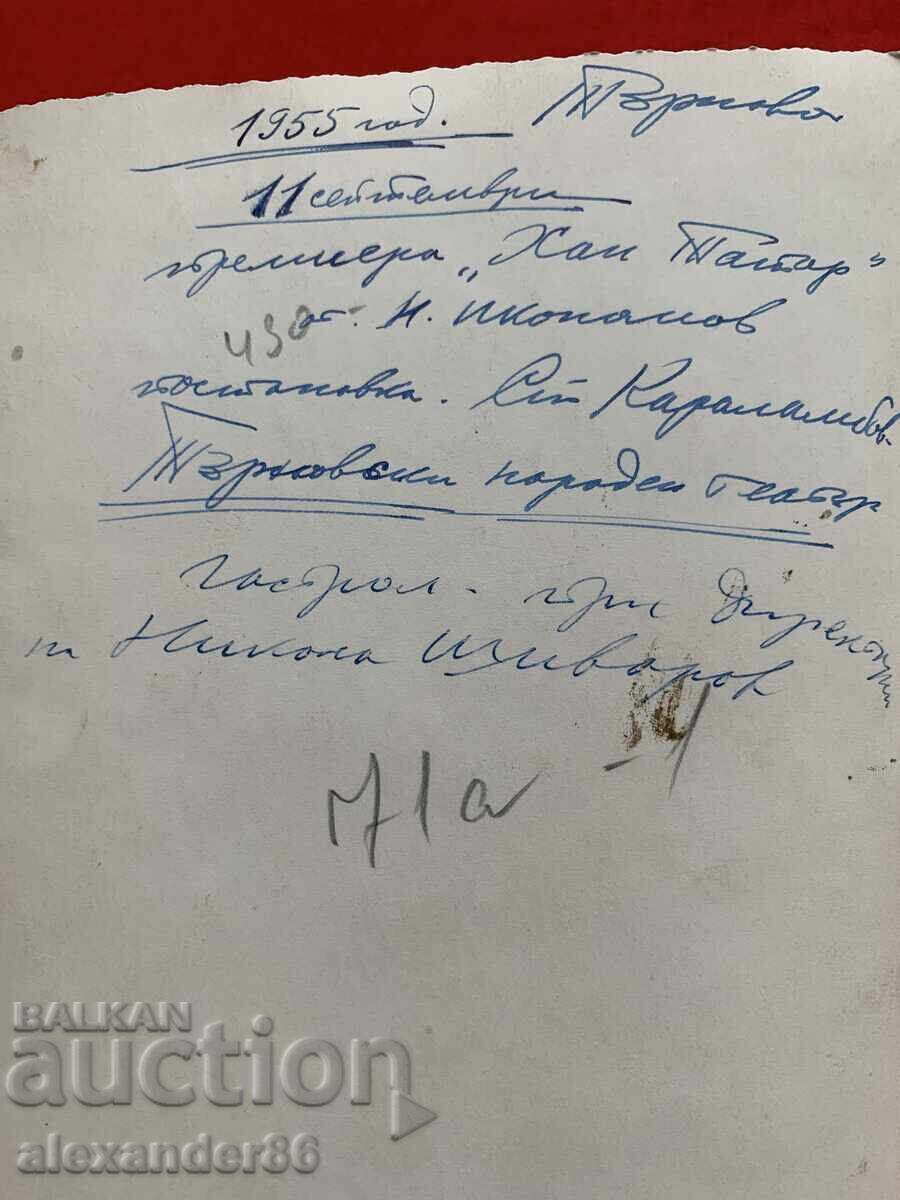 1955 год. Търново
11 септември
премиера „Хан Татар"
от Н. Икономов
430
постановка. Ст Караламбов
Търновски народен театър
гастрол - при директори
на Никола
71а - 1
BALKAN
auction
alexander86